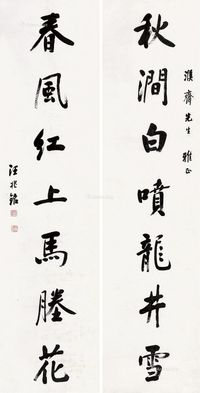 濮齋先生 雅正
秋澗白噴龍井雪
春風紅上馬塍花
汪兆銘